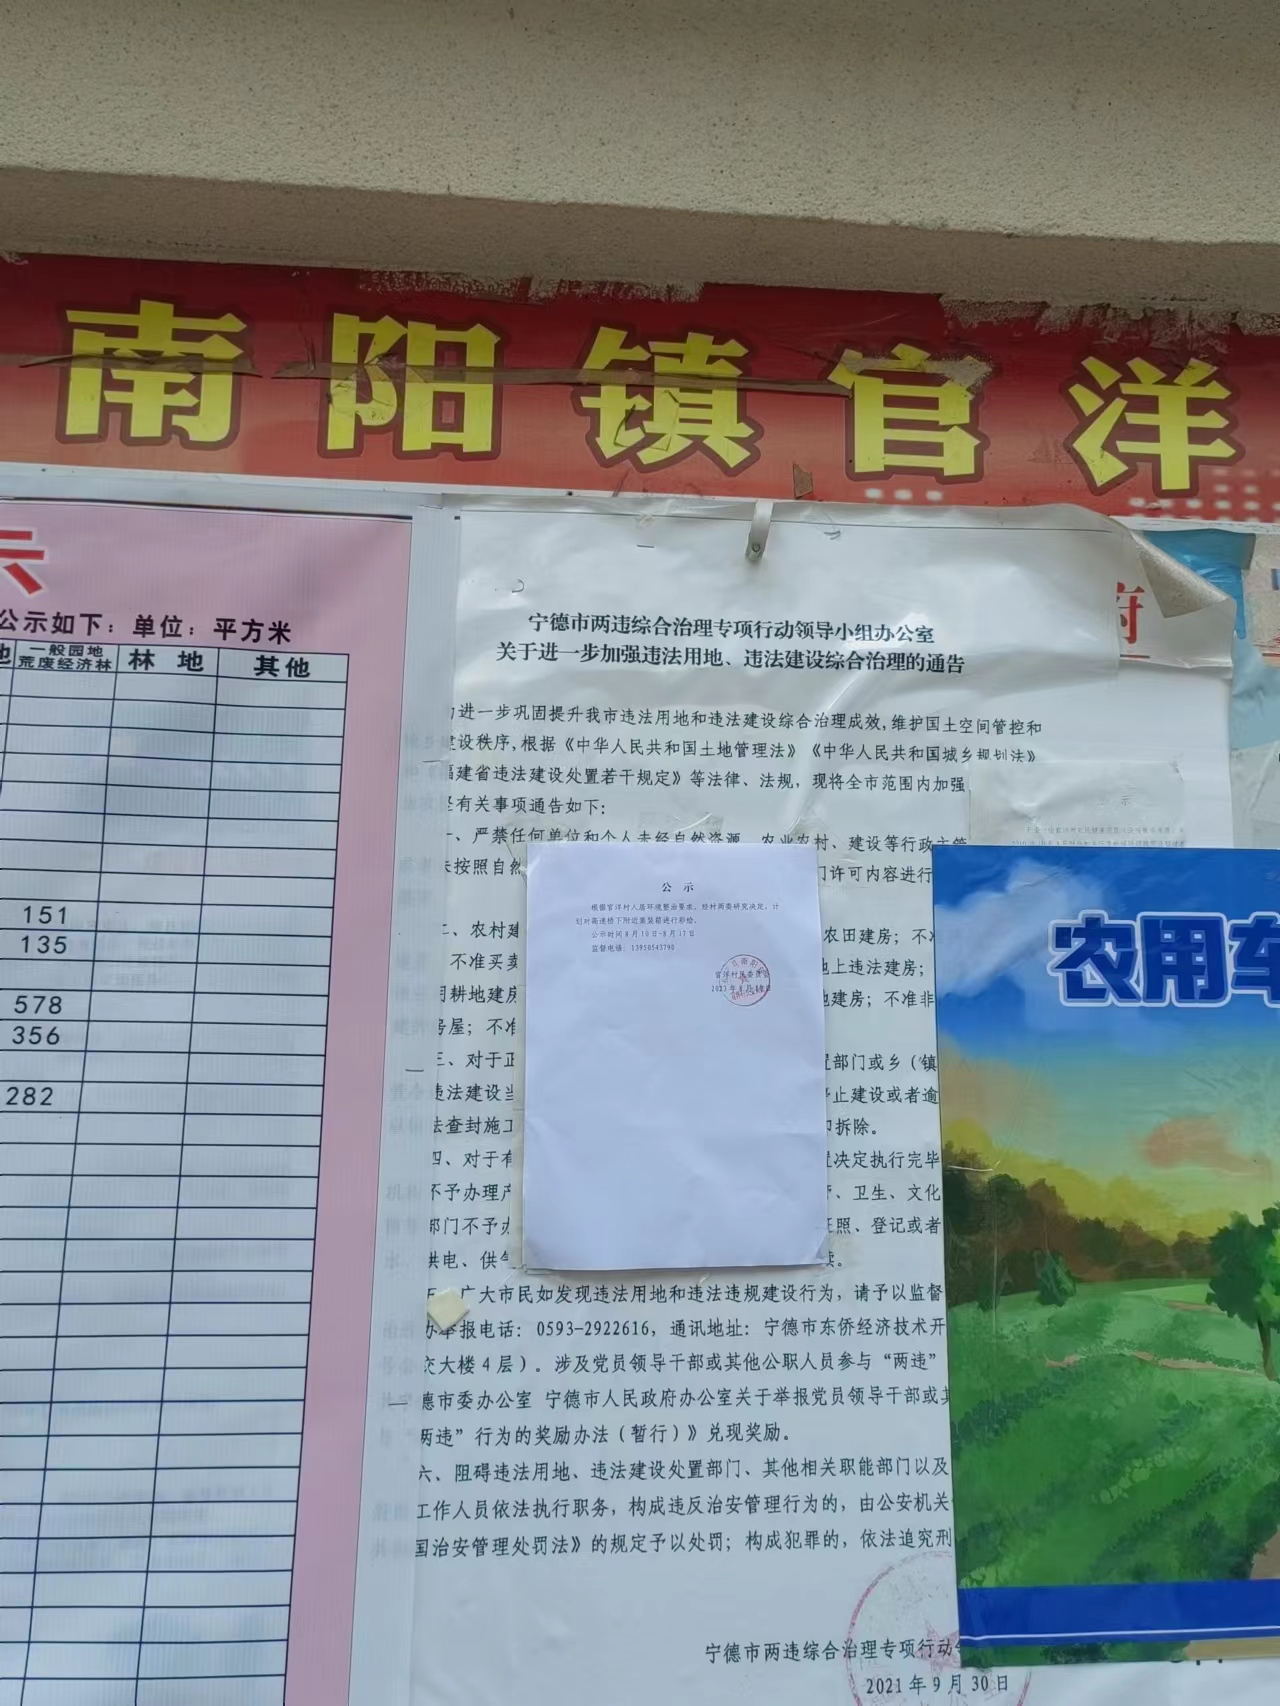 南阳镇官洋
示
公示如下：单位：平方米
一般园地
荒废经济林
林地
其他
151
135
578
356
282
宁德市两违综合治理专项行动领导小组办公室
关于进一步加强违法用地、违法建设综合治理的通告
进一步巩固提升我市违法用地和违法建设综合治理成效,维护国土空间管控和
建设秩序,根据《中华人民共和国土地管理法》《中华人民共和国城乡规划法》
福建省违法建设处置若干规定》等法律、法规，现将全市范围内加强
有关事项通告如下：
一、严禁任何单位和个人未经自然资源、农业农村、建设等行政主管
未按照自然
门许可内容进行
公 示
根据官洋村人居环境整治要求，经村两委研究决定，计
划对高速桥下附近集装箱进行彩绘。
公示时间8月10日-8月17日
监督电话：13950543790
官洋村民委员会
2023年8月10日
二、农村建
农田建房；不准
不准买卖
地上违法建房；
用耕地建房
地建房；不准非
房屋；不准
三、对于正
置部门或乡（镇
违法建设当
停止建设或者逾
法查封施工
即拆除。
四、对于有
置决定执行完毕
不予办理产
、卫生、文化
部门不予办
证照、登记或者
水、供电、供气
续。
五、广大市民如发现违法用地和违法违规建设行为，请予以监督
办举报电话：0593-2922616，通讯地址：宁德市东侨经济技术开
交大楼4层）。涉及党员领导干部或其他公职人员参与“两违”
德市委办公室 宁德市人民政府办公室关于举报党员领导干部或其
“两违”行为的奖励办法（暂行）》兑现奖励。
六、阻碍违法用地、违法建设处置部门、其他相关职能部门以及
工作人员依法执行职务，构成违反治安管理行为的，由公安机关
国治安管理处罚法》的规定予以处罚；构成犯罪的，依法追究刑
宁德市两违综合治理专项行动
2021年9月30日
府
公 示
农用车